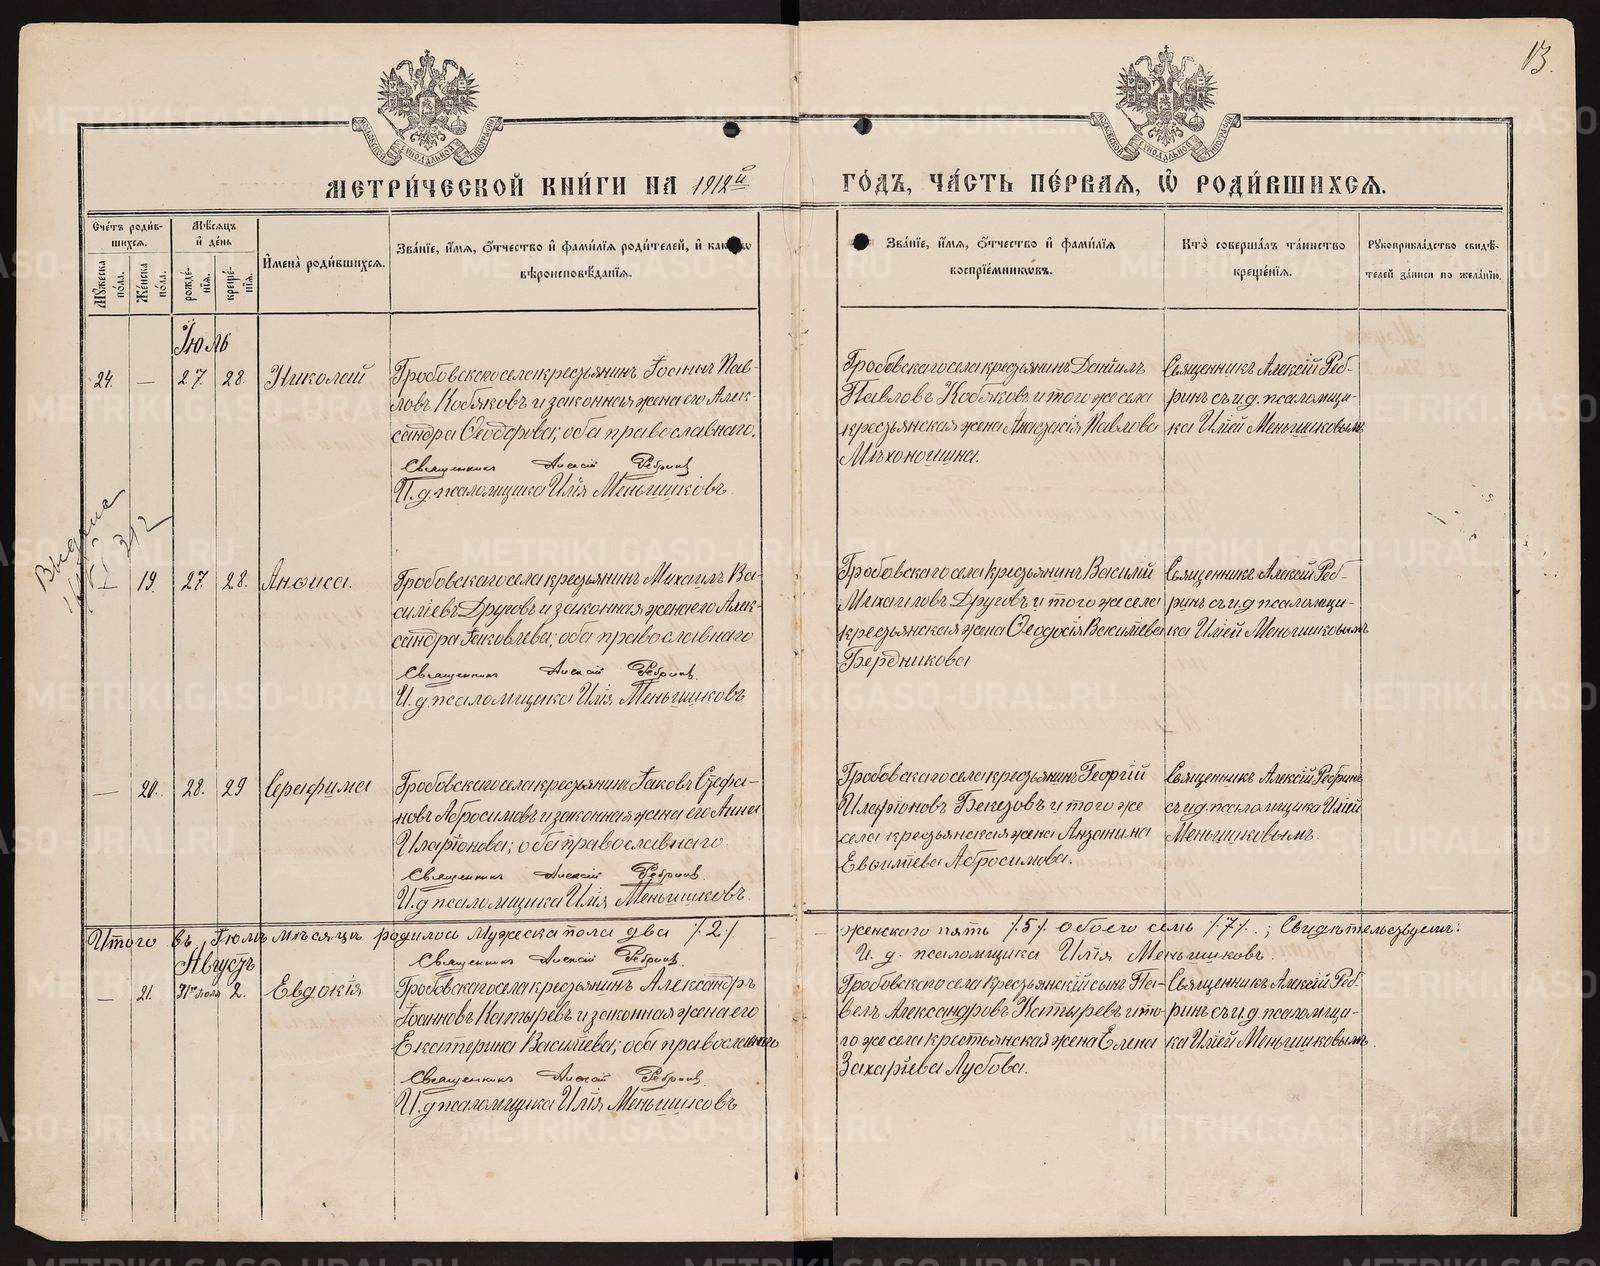 13.
МЕТРИ́ЧЕСКОЙ КНИ́ГИ НА 1912й ГО́ДЪ, ЧА́СТЬ ПЕ́РВАЯ, Ѡ҆ РОДИ́ВШИХСЯ.
Сче́тъ роди́вшихся.
Му́жеска по́ла.
Же́нска по́ла.
Мѣ́сяцъ и де́нь
рожде́нія.
креще́нія.
И҆мена̀ роди́вшихся.
Зва́нїе, и҆́мя, ѻ҆́тчество и҆ фами́лїя роди́телей, и҆ како́гѡ
вѣроисповѣ́данїя.
Зва́нїе, и҆́мя, ѻ҆́тчество и҆ фами́лїя
воспрїе́мникѡвъ.
Кто̀ соверша́лъ та́инство
креще́нїя.
Рукоприкла́дство свидѣ́-
телей за́писи по жела́нїю.
Іюль
24. — 27. 28. Николай
Гробовскаго села крестьянинъ Іоаннъ Пав-
ловъ Кобяковъ и законная жена его Алек-
сандра Ѳеодорова; оба православнаго.
Священникъ Алексій Ребринъ
И. д. псаломщика Илія Меньшиковъ
Гробовскаго села крестьянинъ Даніилъ
Павловъ Кобяковъ и того же села
крестьянская жена Анастасія Павлова
Мѣхоношина.
Священникъ Алексій Реб-
ринъ съ и. д. псаломщи-
ка Иліей Меньшиковымъ
Выдана
— 19. 27. 28. Анѳиса.
Гробовскаго села крестьянинъ Михаилъ Ва-
силіевъ Друговъ и законная жена его Алек-
сандра Іаковлева; оба православнаго
Священникъ Алексій Ребринъ.
И. д. псаломщика Илія Меньшиковъ
Гробовскаго села крестьянинъ Василій
Михаиловъ Друговъ и того же села
крестьянская жена Ѳеодосія Василіева
Бердникова
Священникъ Алексій Реб-
ринъ съ и. д. псаломщи-
ка Иліей Меньшиковымъ
— 20. 28. 29 Серафима
Гробовскаго села крестьянинъ Іаковъ Стефа-
новъ Абросимовъ и законная жена его Анна
Иларіонова; оба православнаго.
Священникъ Алексій Ребринъ.
И. д. псаломщика Илія Меньшиковъ.
Гробовскаго села крестьянинъ Георгій
Иларіоновъ Бекетовъ и того же
села крестьянская жена Антонина
Евѳиміева Абросимова.
Священникъ Алексій Ребринъ
съ и. д. псаломщика Иліей
Меньшиковымъ.
Итого въ Іюлѣ мѣсяцѣ родилось мужеска пола два /.2./ — женскаго пять /.5./ обоего семь /.7./.; Свидѣтельствуемъ:
Священникъ Алексій Ребринъ. И. д. псаломщика Илія Меньшиковъ.
Августъ
— 21. 31го Іюля 2. Евдокія
Гробовскаго села крестьянинъ Александръ
Іоанновъ Катыревъ и законная жена его
Екатерина Василіева; оба православнаго
Священникъ Алексій Ребринъ.
И. д. псаломщика Илія Меньшиковъ
Гробовскаго села крестьянскій сынъ Па-
велъ Александровъ Катыревъ и то-
го же села крестьянская жена Елена
Захаріева Лубова.
Священникъ Алексій Реб-
ринъ съ и. д. псаломщи-
ка Иліей Меньшиковымъ.
METRIKI.GASO-URAL.RU